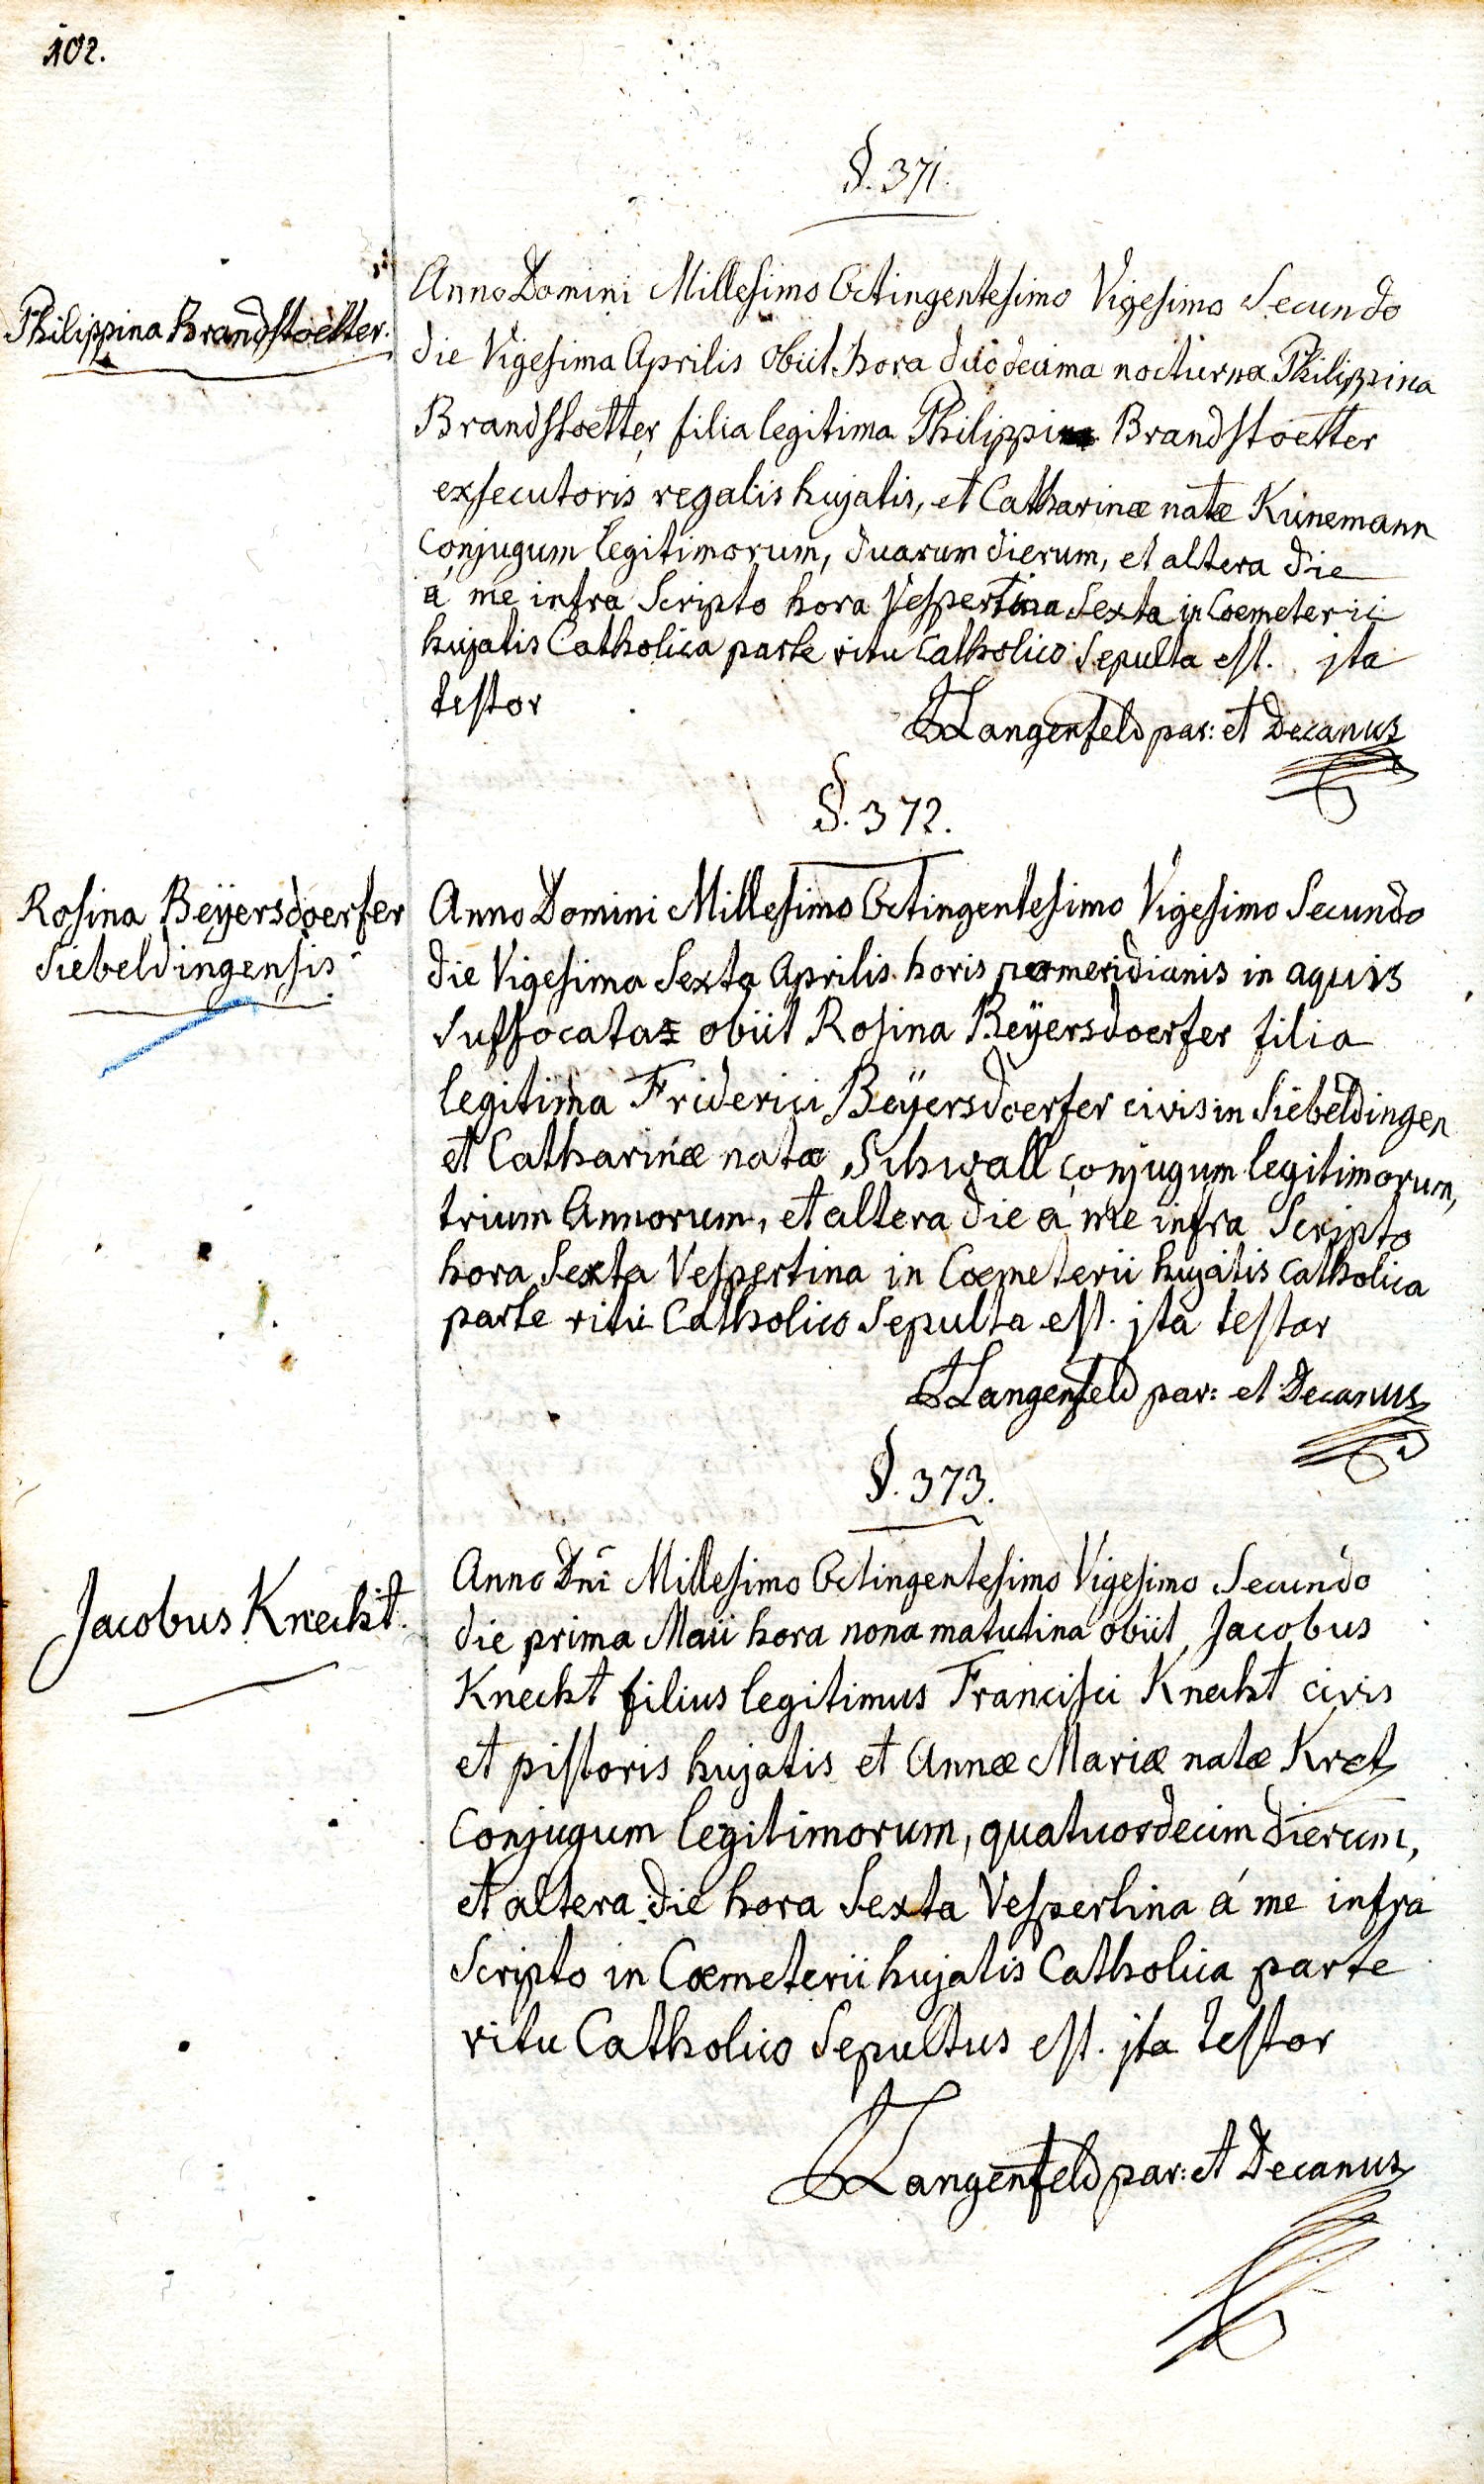 102.
§. 371.
Philippina Brandstoetter.
Anno Domini Millesimo Octingentesimo Vigesimo Secundo
die Vigesima Aprilis obiit hora duodecima nocturna Philippina
Brandstoetter filia legitima Philippi Brandstoetter
exsecutoris regalis hujatis, et Catharinæ natæ Künemann
Conjugum legitimorum, duarum dierum, et altera die
á me infra Scripto hora Vespertina Sexta in Coemeterii
hujatis Catholica parte ritu Catholico Sepulta est. jta
testor
Langenfeld par: et Decanus
§. 372.
Rosina Beÿersdoerfer
Siebeldingensis
Anno Domini Millesimo Octingentesimo Vigesimo Secundo
die Vigesima Sexta Aprilis horis pomeridianis in aquis
Suffocata obiit Rosina Beÿersdoerfer filia
legitima Friderici Beÿersdoerfer civis in Siebeldingen
et Catharinæ natæ Schwall conjugum legitimorum,
trium Annorum, et altera die á me infra Scripto
hora Sexta Vespertina in Coemeterii hujatis Catholica
parte ritu Catholico Sepulta est. jta testor
Langenfeld par: et Decanus
§. 373.
Jacobus Knecht.
Anno Dni Millesimo Octingentesimo Vigesimo Secundo
die prima Maii hora nona matutina obiit Jacobus
Knecht filius legitimus Francisci Knecht civis
et pistoris hujatis et Annæ Mariæ natæ Kretz
Conjugum legitimorum, quatuordecim dierum,
et altera die hora Sexta Vespertina á me infra
Scripto in Coemeterii hujatis Catholica parte
ritu Catholico Sepultus est. jta testor
Langenfeld par: et Decanus